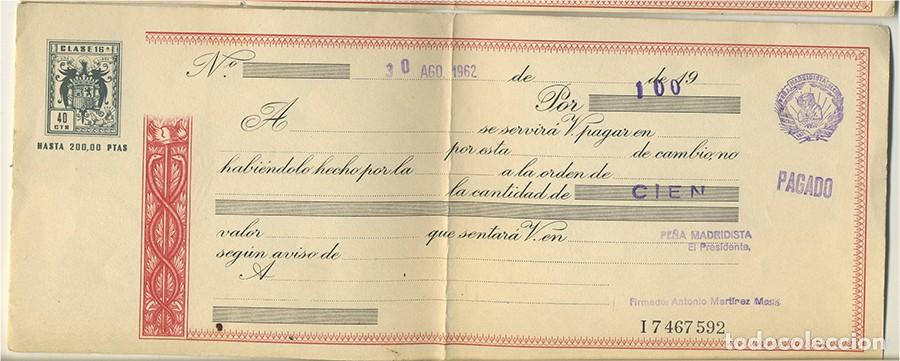 CLASE 16ª
40
CTS
HASTA 200,00 PTAS
N.º 30 AGO. 1962 de de 19
Por 100
A se servirá V. pagar en
por esta de cambio, no
habiéndolo hecho por la a la orden de
la cantidad de CIEN
PAGADO
valor que sentará V. en
PEÑA MADRIDISTA
El Presidente,
según aviso de
A
Firmado: Antonio Martínez
I 7467592
todocoleccion